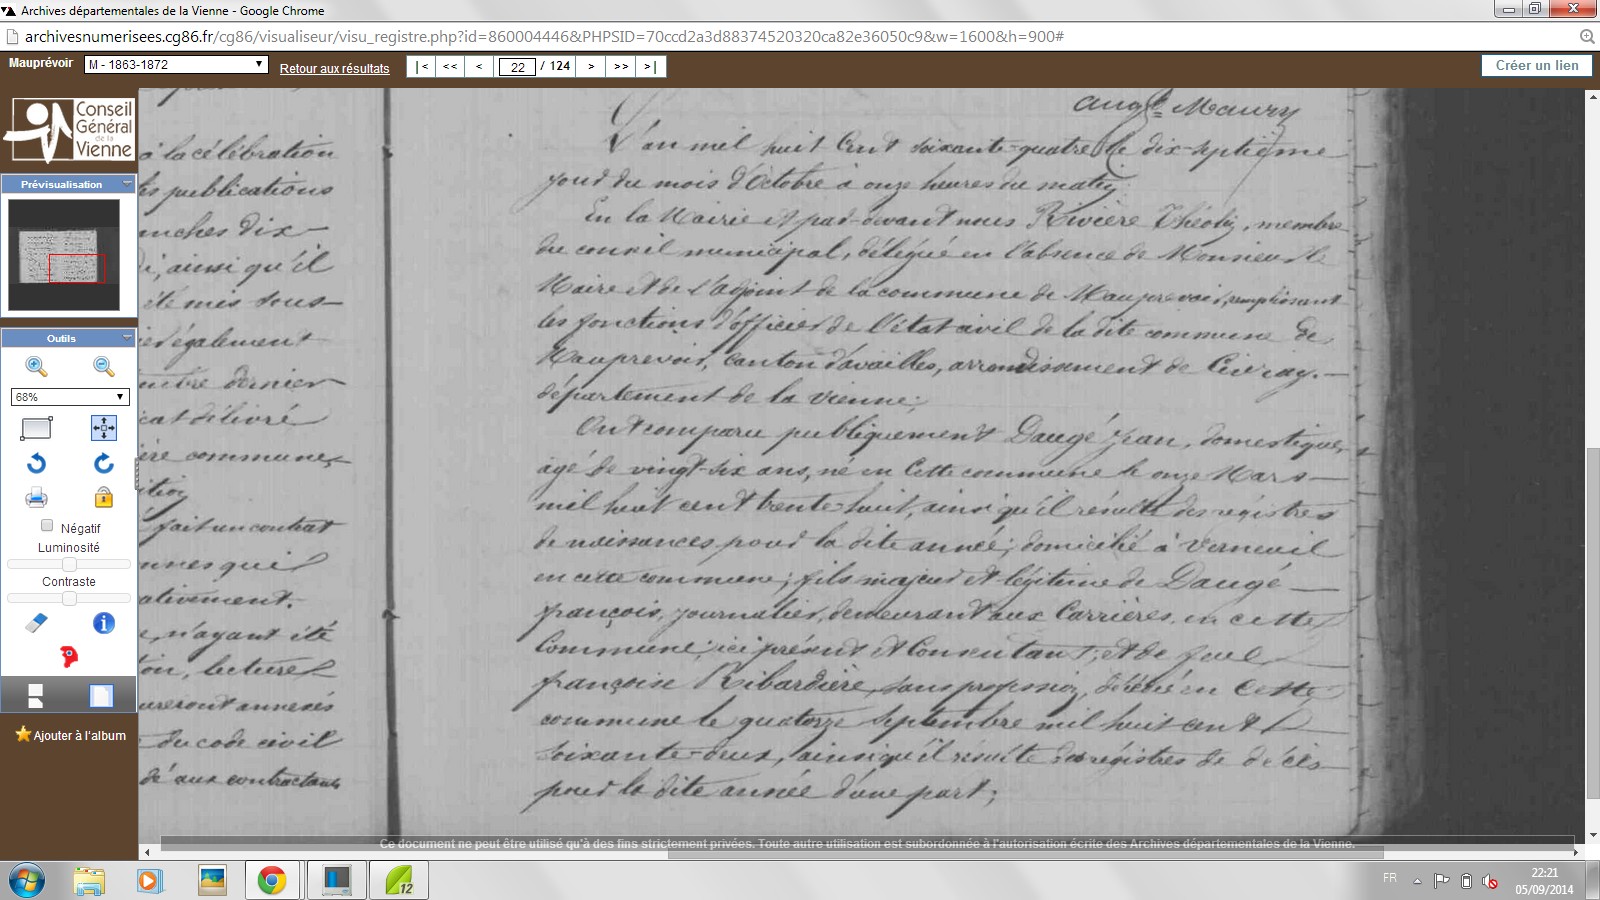 Archives départementales de la Vienne - Google Chrome
archivesnumerisees.cg86.fr/cg86/visualiseur/visu_registre.php?id=860004446&PHPSID=70ccd2a3d88374520320ca82e36050c9&w=1600&h=900#
Mauprévoir
M - 1863-1872
Retour aux résultats
|<
<<
<
22 / 124
>
>>
>|
Créer un lien
Conseil
Général
de la
Vienne
Prévisualisation
Outils
68%
Négatif
Luminosité
Contraste
Ajouter à l'album
à la célébration
les publications
anches dix-
ainsi qu'il
été mis sous-
également
dernier
délivré
commune,
fait un contrat
qu'il
n'ayant été
lecture
seront annexés
du code civil
aux contractans
Maury
L'an mil huit Cent soixante-quatre le dix-septième
jour du mois d'Octobre à onze heures du matin;
En la Mairie et par-devant nous Rivière Théobin, membre
du conseil municipal, délégué en l'absence de Monsieur le
Maire et de l'adjoint de la commune de Mauprevoir, remplissant
les fonctions d'officier de l'état civil de la dite commune de
Mauprevoir, Canton d'availles, arrondissement de Civray.—
département de la Vienne;
Ont comparu publiquement Daugé Jean, domestique,
âgé de vingt-six ans, né en Cette commune le onze Mars—
mil huit cent trente-huit, ainsi qu'il résulte des régistres
de naissances pour la dite année; domicilié à Verneuil
en cette commune; fils majeur et légitime de Daugé—
françois, journalier, demeurant aux Carrières, en cette
Commune, ici présent et Consentant; et de feue
françoise Ribardière, sans profession, décédée en Cette
commune le quatorze Septembre mil huit cent
soixante-deux, ainsi qu'il résulte des régistres de décès
pour la dite année d'une part;
Ce document ne peut être utilisé qu'à des fins strictement privées. Toute autre utilisation est subordonnée à l'autorisation écrite des Archives départementales de la Vienne.
12
FR
22:21
05/09/2014